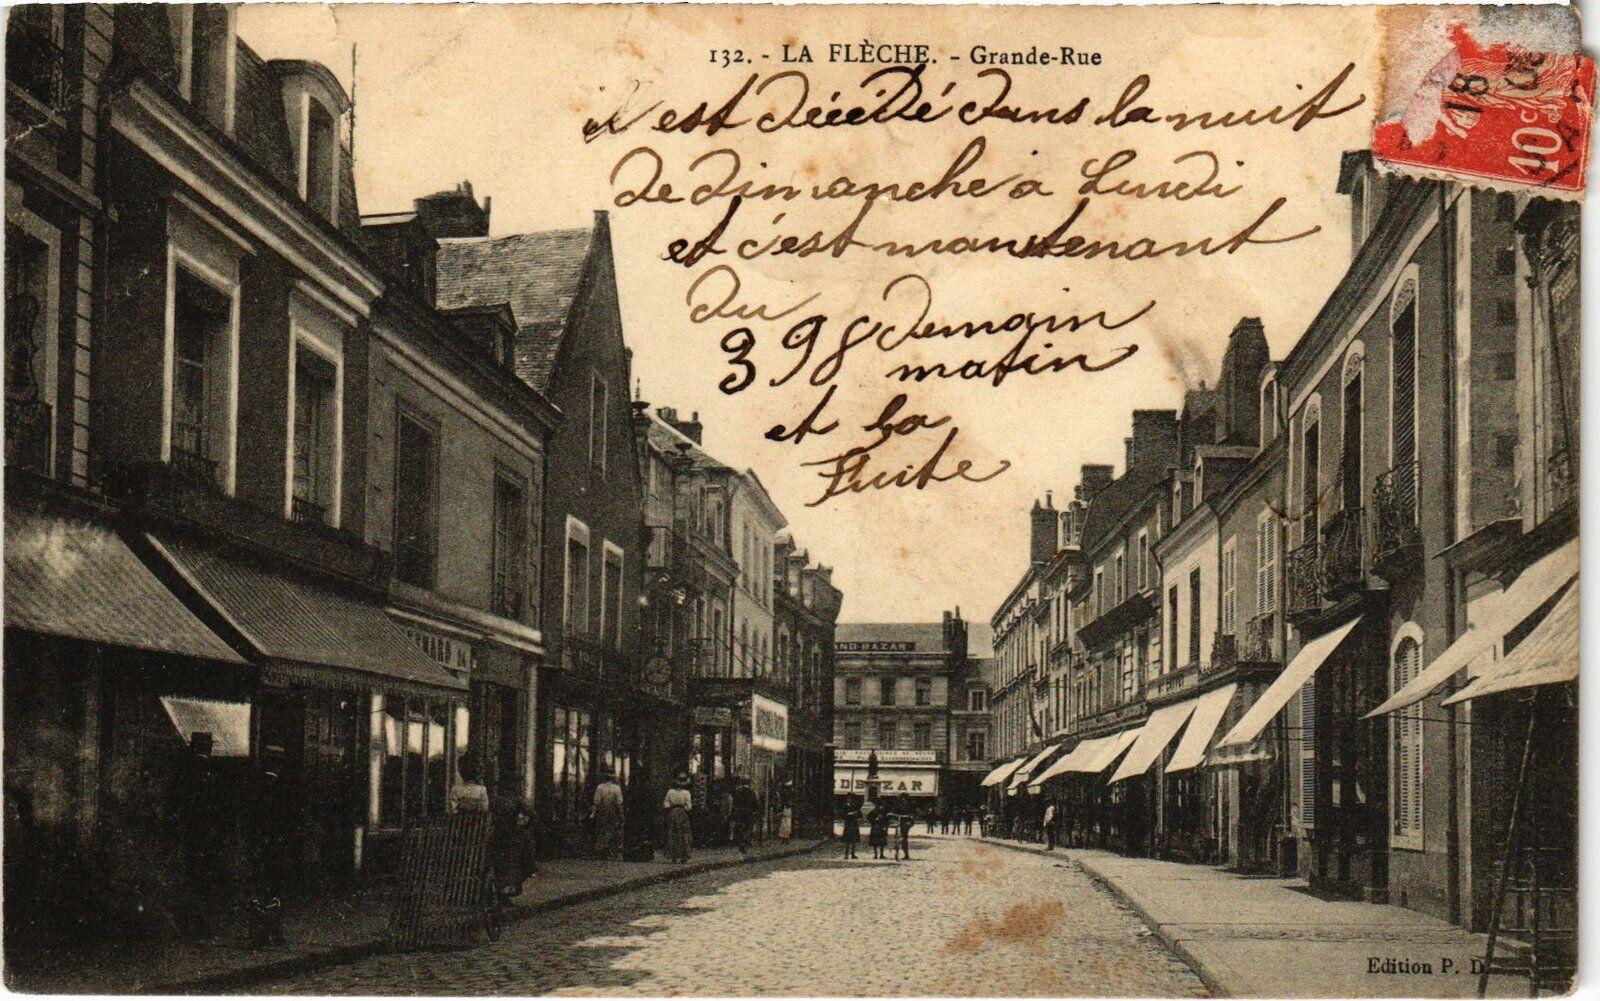 132. - LA FLÈCHE. - Grande-Rue
il est décédé dans la nuit
de dimanche a Lundi
et c'est maintenant
du
398 demain
matin
et la
Fuite
10c
18
ND BAZAR
BAZAR
Edition P. D.